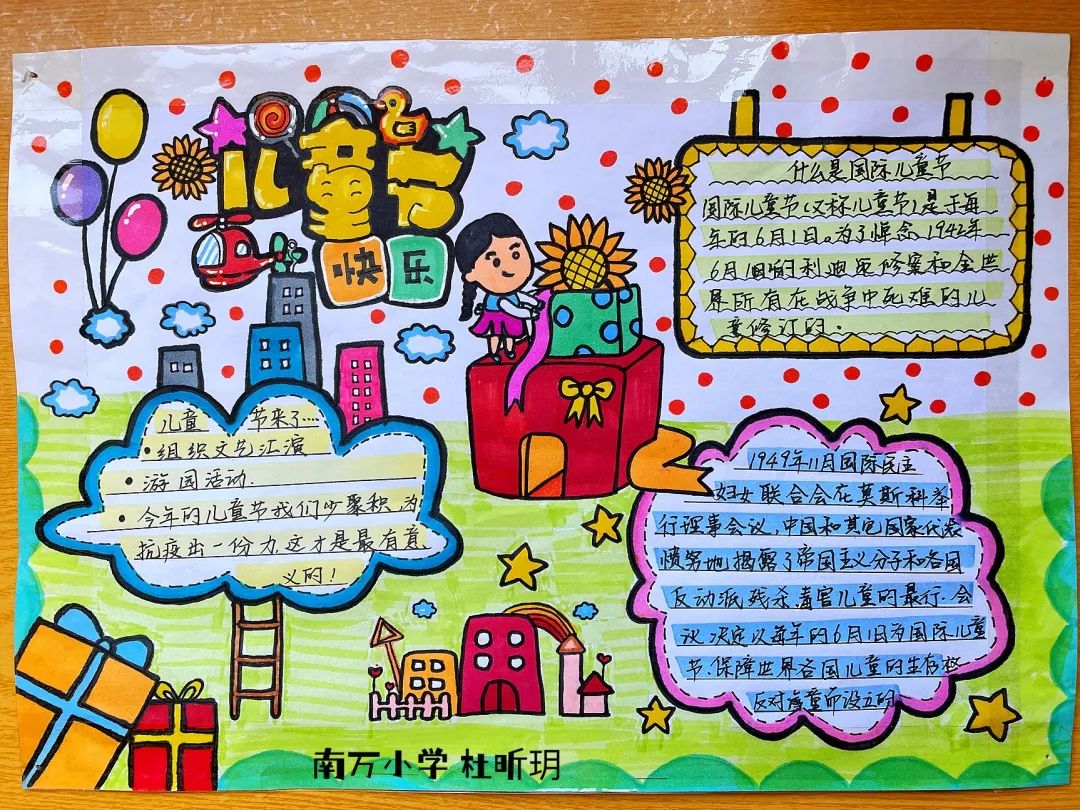 儿童节
快乐
什么是国际儿童节
国际儿童节(又称儿童节)是于每
年的6月1日。为了悼念1942年
6月旧的利迪策修案和全世
界所有在战争中死难的儿
童修订的.
儿童 节来了....
•组织文艺汇演
•游园活动.
•今年的儿童节我们少聚积,为
抗疫出一份力.这才是最有意
义的!
1949年11月国际民主
妇女联合会在莫斯科举
行理事会议,中国和其它国家代表
愤努地揭露了帝国主义分子和各国
反动派残杀、毒害儿童的最行.会
议决定以每年的6月1日为国际儿童
节.保障世界各国儿童的生存
反对 童而设立的
南万小学 杜昕玥